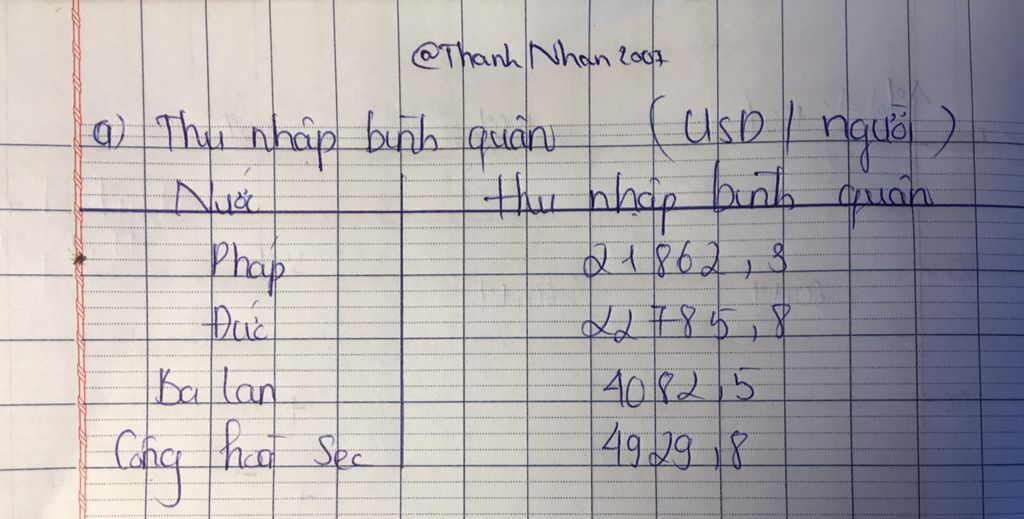 @Thanh Nhan 2007
a) Thu nhập bình quân (USD / người)
Nước thu nhập bình quân
Pháp 21862,3
Đức 22785,8
Ba lan 4082,5
Cộng hoà Sec 4929,8